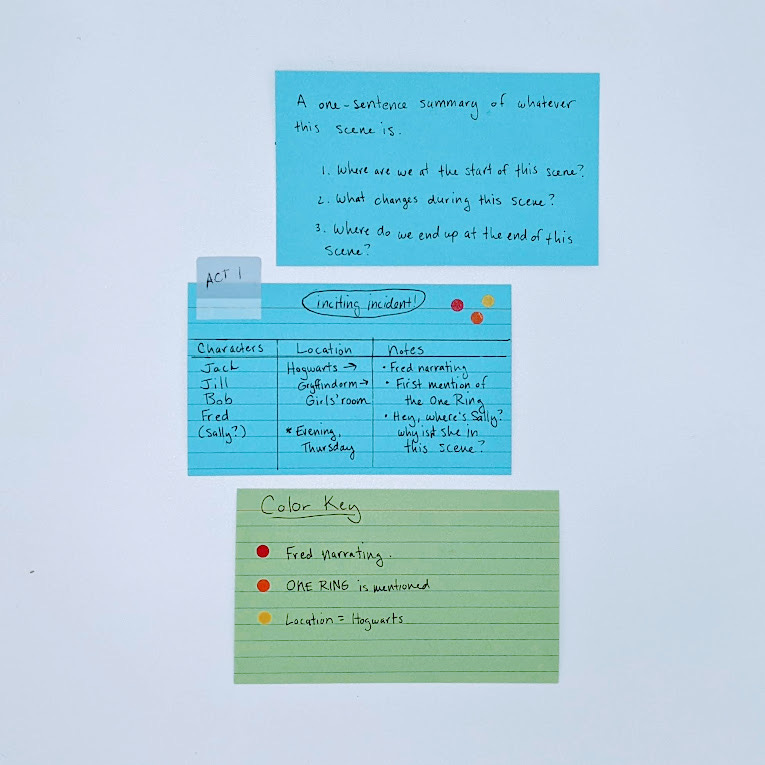 A one-sentence summary of whatever
this scene is.
1. Where are we at the start of this scene?
2. What changes during this scene?
3. Where do we end up at the end of this
scene?
ACT 1
inciting incident!
Characters
Jack
Jill
Bob
Fred
(Sally?)
Location
Hogwarts →
Gryffindorm →
Girls' room
* Evening,
Thursday
Notes
• Fred narrating
• First mention of
the One Ring
• Hey, where's Sally?
why isn't she in
this scene?
Color Key
Fred narrating.
ONE RING is mentioned
Location = Hogwarts